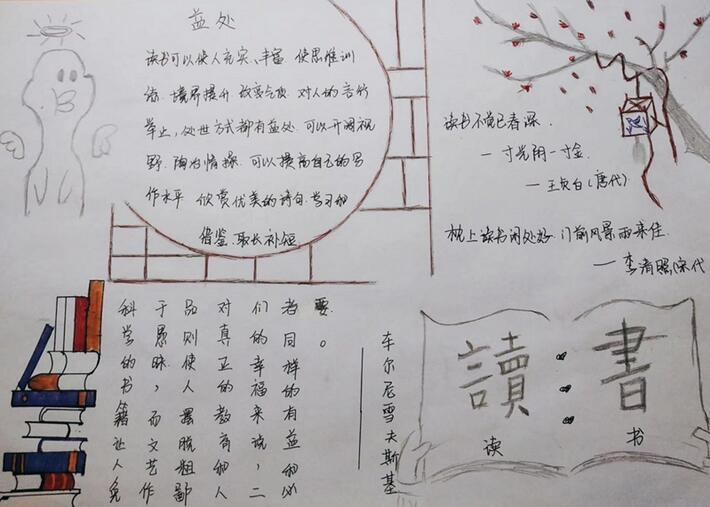 益处
读书可以使人充实、丰富 使思维训
活、境界提升 改变气质 对人的言行
举止，处世方式都有益处 可以开阔视
野 陶冶情操 可以提高自己的写
作水平 欣赏优美的诗句 学习和
借鉴、取长补短
读书不觉已春深
一寸光阴一寸金
— 王贞白(唐代)
枕上读书闲处好 门前风景雨来佳
— 李清照(宋代)
科学的书籍让人免
于愚昧，而文艺作
品则使人摆脱粗鄙
对真正的教育和人
们的幸福来说，二
者同样的有益的必
要。
——车尔尼雪夫斯基
讀書
读 书